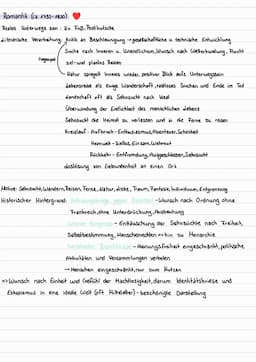 Romantik (ca. 1795-1830) ❤
Reales Unterwegs sein : zu Fuß, Postkutsche
Literarische Verarbeitung: Kritik an Beschleunigung → gesellschaftliche u. technische Entwicklung
Suche nach Innerem u. Unendlichem, Wunsch nach Weltentrückung, Flucht
ziel- und planloses Reisen
Natur spiegelt Inneres wieder, positiver Blick aufs Unterwegssein
Lebensreise als ewige Wanderschaft, rastloses Suchen und Ende im Tod
Landschaft oft als Sehnsucht nach Ideal
Überwindung der Endlichkeit des menschlichen Lebens
Sehnsucht die Heimat zu verlassen und in die Ferne zu reisen
Kreislauf: Aufbruch - Enthusiasmus, Abenteuer, Schönheit
Heimweh - Zweifel, Einsam, Wehmut
Rückkehr - Entfremdung, Ausgeschlossen, Sehnsucht
Loslösung von Gebundenheit an einen Ort
Motive: Sehnsucht, Wandern, Reisen, Ferne, Natur, Liebe, Traum, Fantasie, Individuum, Entgrenzung
Historischer Hintergrund: gegen → Wunsch nach Ordnung ohne
Frankreich, ohne Unterdrückung, Ausbeutung
- Enttäuschung der Sehnsüchte nach Freiheit,
Selbstbestimmung, Menschenrechten → hin zu Monarchie
Karlsbader Beschlüsse - Meinungsfreiheit eingeschränkt, politische
Aktivitäten und Versammlungen verboten
→ Menschen eingeschränkt, nur zum Nutzen
=> Wunsch nach Einheit und Gefühl der Machtlosigkeit, darum Identitätskrise und
Eskapismus in eine ideale Welt (oft Mittelalter) - beschönigte Darstellung